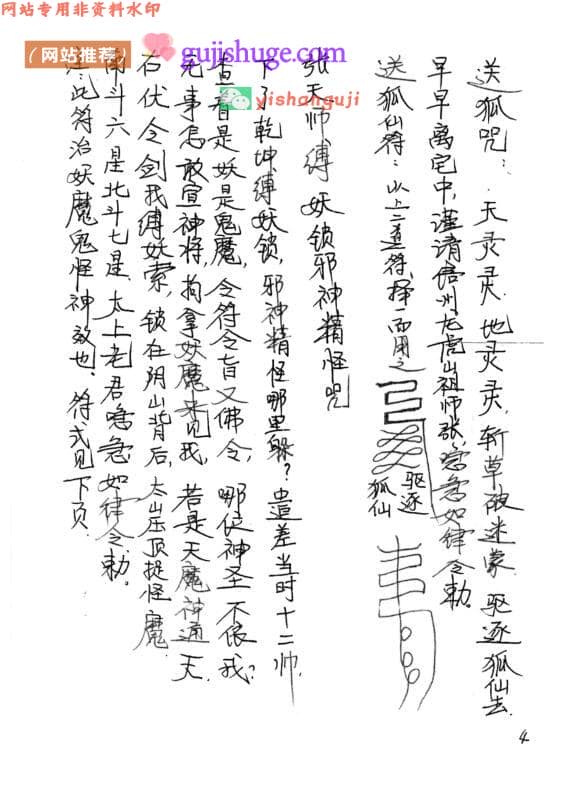 网站专用非资料水印
（网站推荐）
gujishuge.com
yishanguji
送狐咒：天灵灵，地灵灵，斩草破迷蒙，驱逐狐仙去，
早早离宅中，谨请信州龙虎山祖师张，急急如律令勅。
送狐仙符：以上二道符，择一而用之
驱逐
狐仙
张天师缚妖锁邪神精怪咒
下了乾坤缚妖锁，邪神精怪哪里躲？遣差当时十二帅，
查看是妖是鬼魔，令符令旨又佛令，哪位神圣不依我？
无事怎敢宣神将，拘拿妖魔来见我，若是天魔神通天，
右伏令剑我缚妖索，锁在阴山背后，太山压顶捉怪魔，
南斗六星北斗七星，太上老君急急如律令勅。
注：此符治妖魔鬼怪神效也，符式见下页。
4